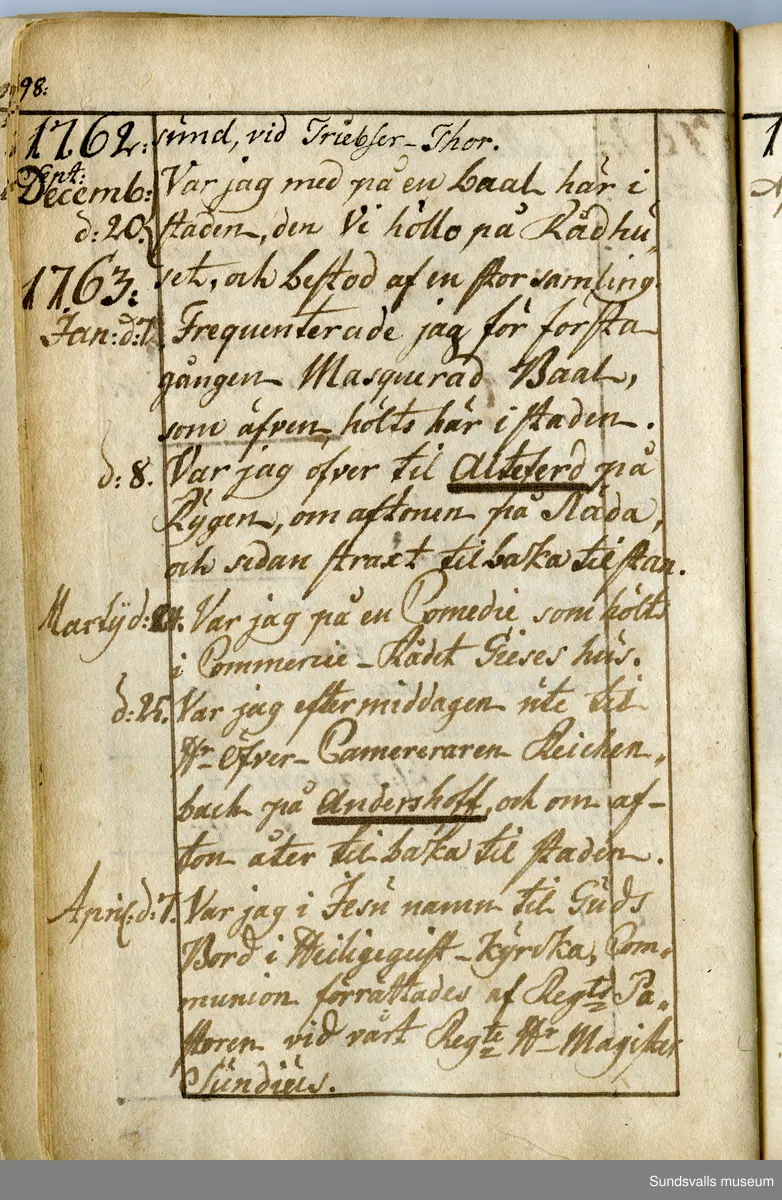 98:
1762: sund, vid Triebser-Thor.
Decemb: Var jag med på en Baal här i
d: 20. staden, den Vi höllo på Rådhu„
1763: set, och bestod af en stor samling.
Jan: d: 7. Frequenterade jag för första
gången Masquerad Baal,
som äfven hölts här i staden.
d: 8. Var jag öfver til Alteferd på
Rÿgen, om aftonen på Släda,
och sedan straxt tilbaka til stan.
Martÿ d: Var jag på en Comedie som hölts
i Commercie-Rådet Gieses hus.
d: 25. Var jag eftermiddagen ute til
Hr Öfver-Camereraren Reichen„
bach på Andershoff, och om af-
ton åter tilbaka til staden.
April: d: 7. Var jag i Jesu namn til Guds
Bord i Heiligegeist-Kÿrcka, Com„
munion förrättades af Regts Pa„
storen vid vårt Regte Hr Magister
Sundius.
Sundsvalls museum